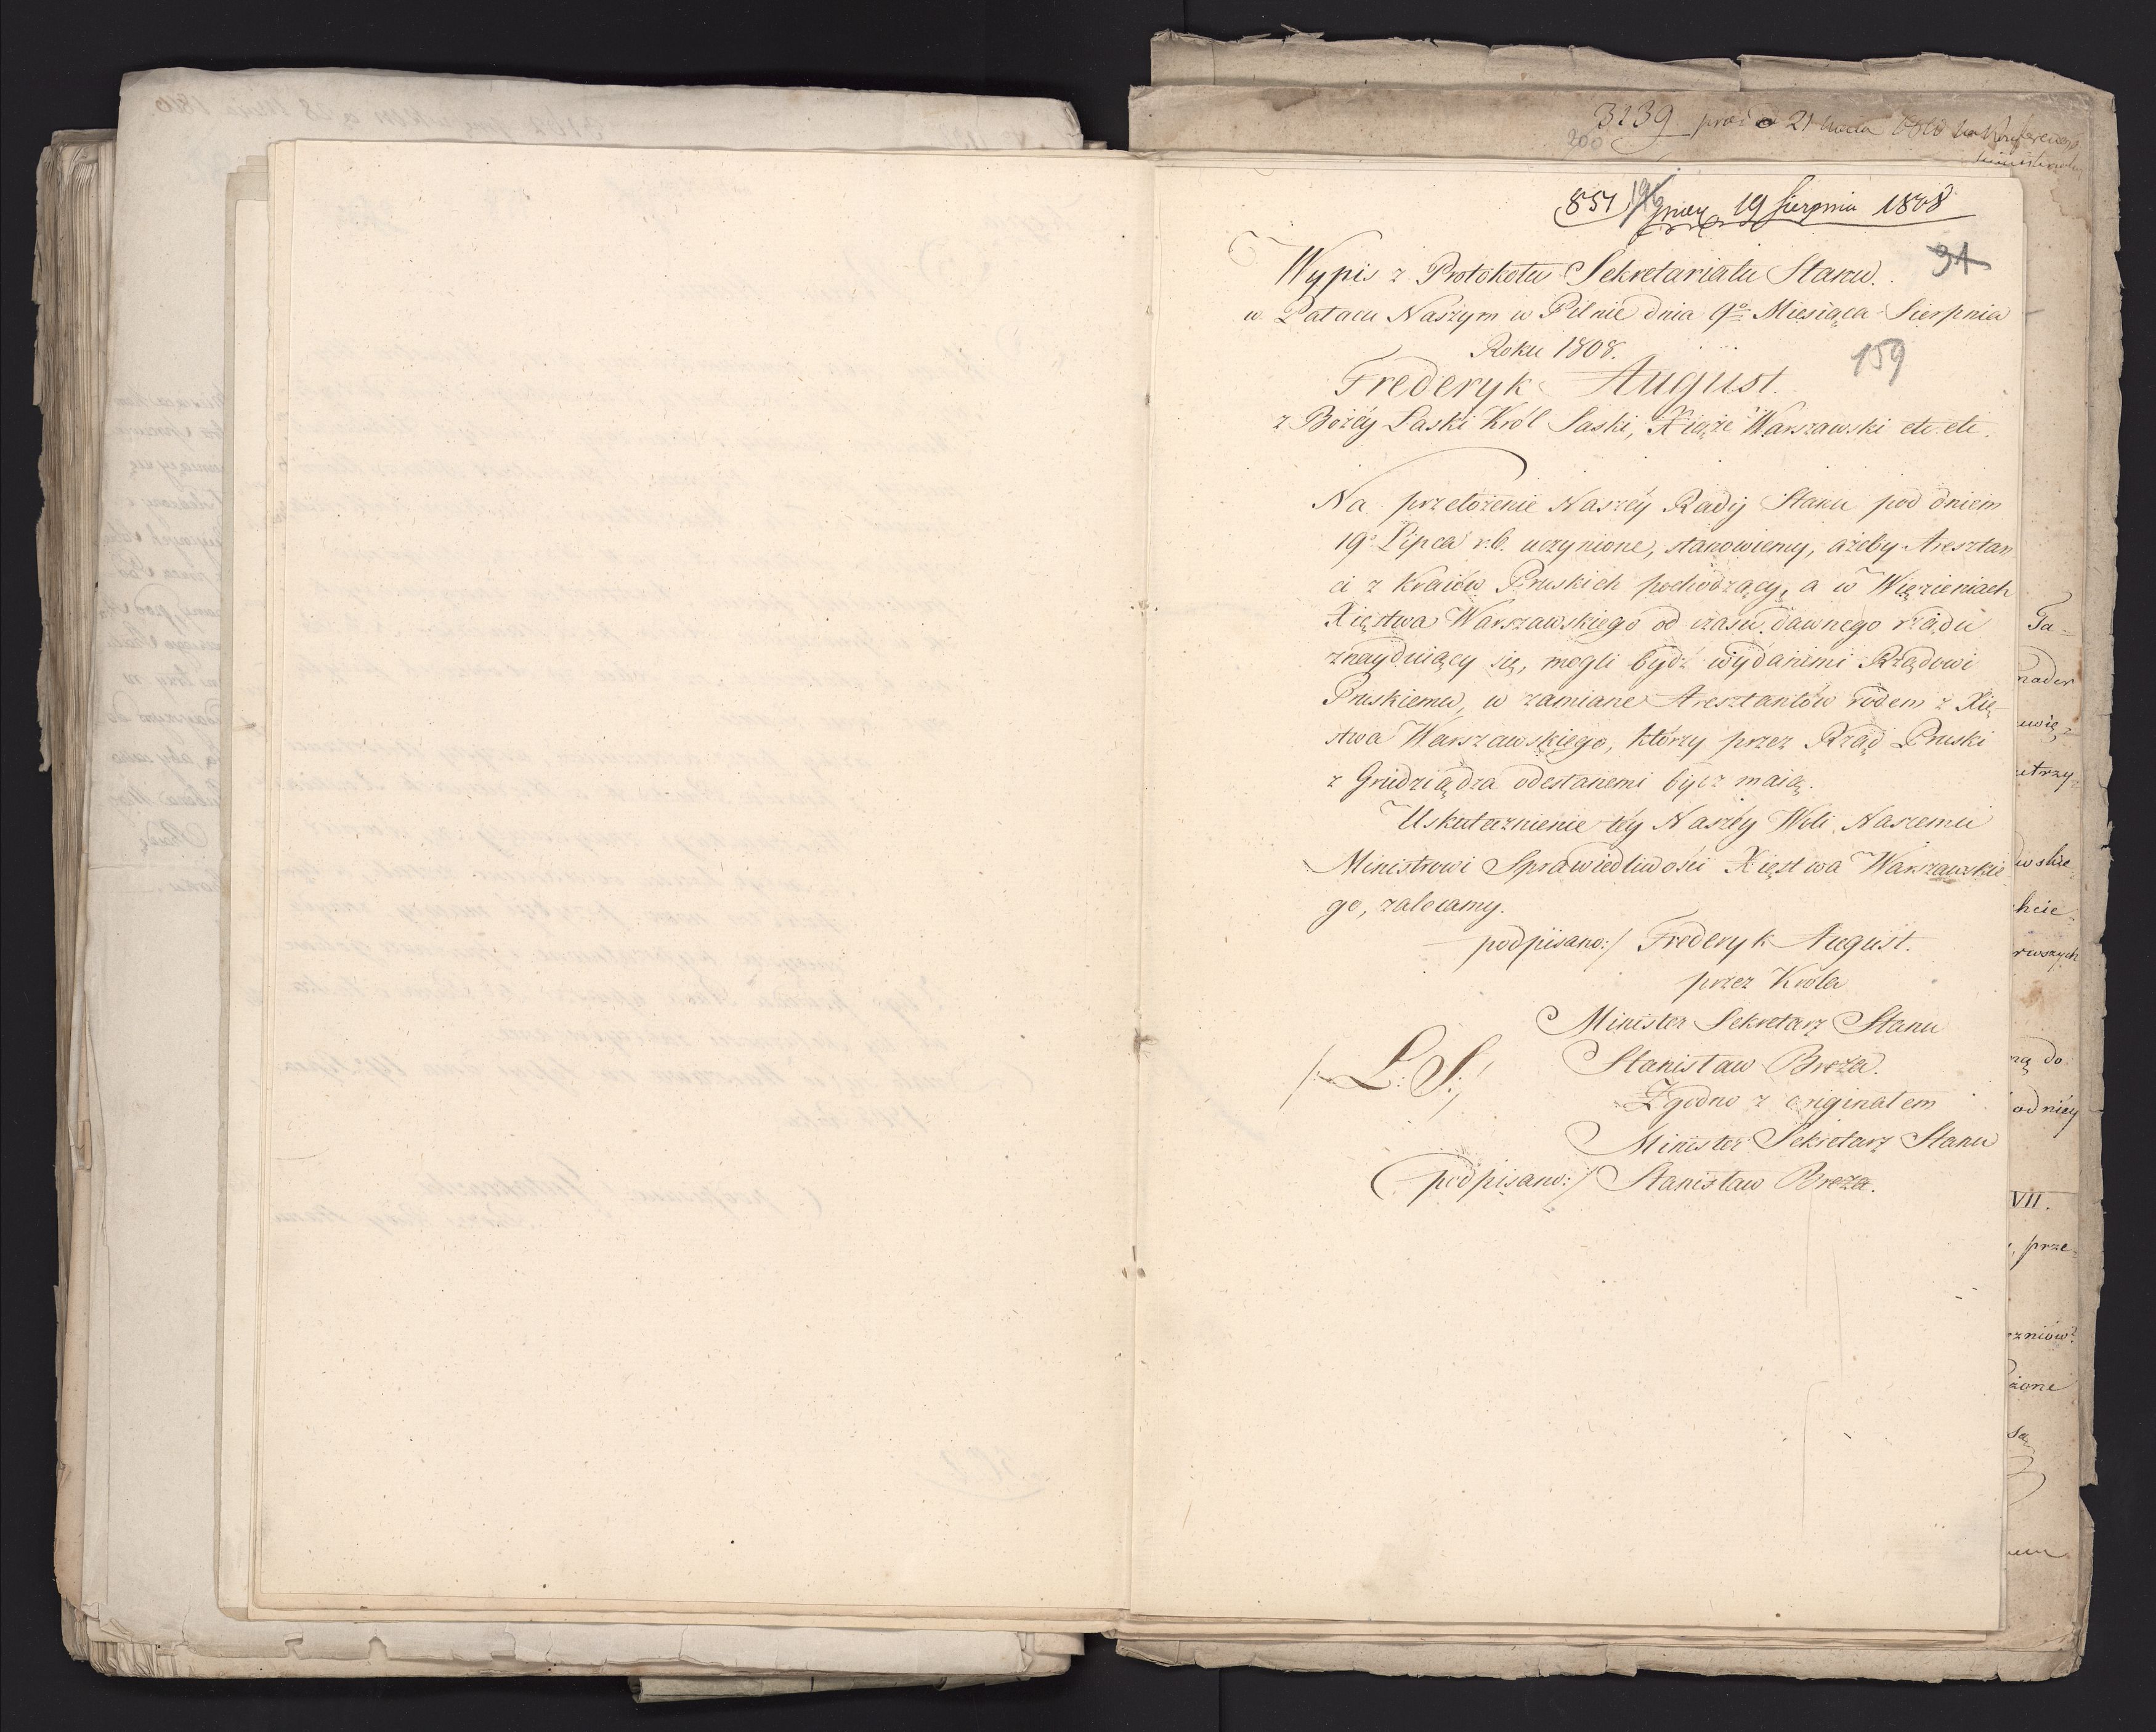 3239 21 1810
200
851 196 19 Sierpnia 1808
31
Wypis z Protokołu Sekretariatu Stanu.
w Pałacu Naszym w Pilnie dnia 9º Miesiąca Sierpnia
Roku 1808.
159
Frederyk August.
z Bożéy Łaski Król Saski, Xiąże Warszawski etc. etc.
Na przełożenie Naszéy Rady Stanu pod dniem
19º Lipca r.b. uczynione, stanowiemy, ażeby Aresztan
ci z Kraiów Pruskich pochodzący, a w Więzieniach
Xięstwa Warszawskiego od czasu dawnego rządu
znayduiący się, mogli bydź wydanimi Rządowi
Pruskiemu, w zamianę Aresztantów rodem z Xię-
stwa Warszawskiego, którzy przez Rząd Pruski
z Grudziądza odesłanemi bydź maią.
Uskutecznienie téy Naszéy Woli Naszemu
Ministrowi Sprawiedliwości Xięstwa Warszawskie
go, zalecamy.
podpisano:/ Frederyk August.
przez Króla
Minister Sekretarz Stanu
/: L: S: / Stanisław Breza.
Zgodno z originałem
Minister Sekretarz Stanu
(podpisano:/ Stanisław Breza.